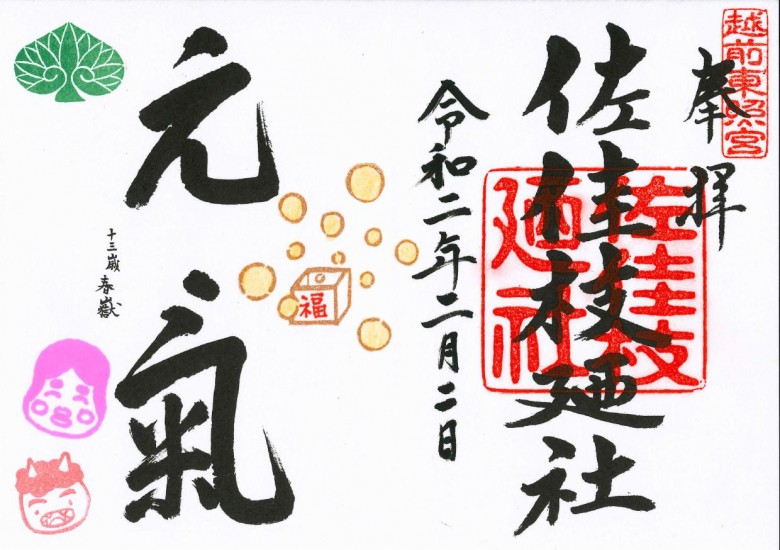 越前東照宮
奉拝
佐佳枝廼社
佐佳枝
廼社
令和二年二月二日
福
元氣
十三歳 春嶽